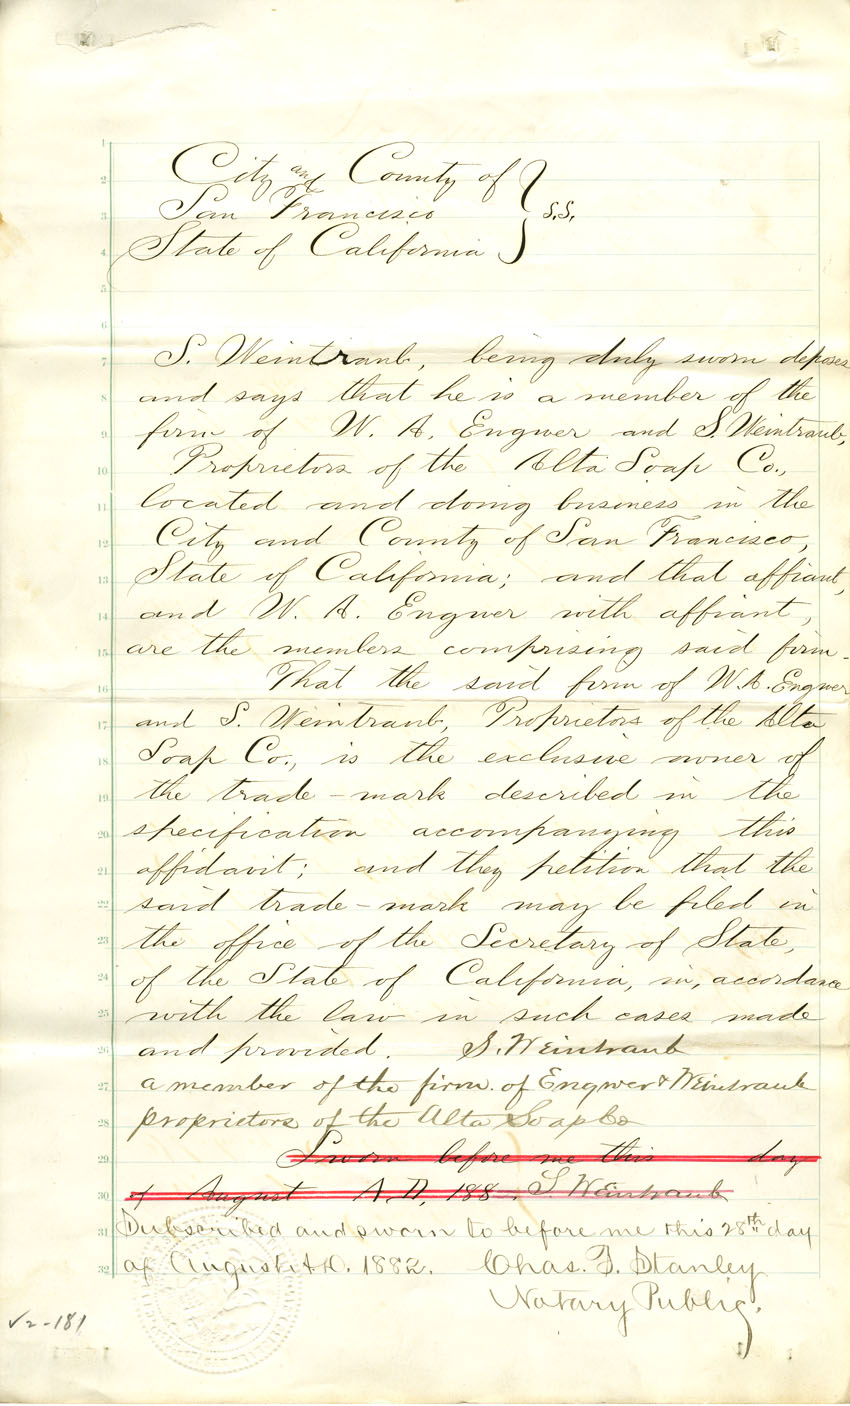 City and County of
San Francisco } S.S.
State of California
S. Weintraub, being duly sworn deposes
and says that he is a member of the
firm of W. A. Engwer and S. Weintraub,
Proprietors of the Alta Soap Co.,
located and doing business in the
City and County of San Francisco,
State of California; and that affiant,
and W. A. Engwer with affiant,
are the members comprising said firm.
That the said firm of W. A. Engwer
and S. Weintraub, Proprietors of the Alta
Soap Co., is the exclusive owner of
the trade-mark described in the
specification accompanying this
affidavit; and they petition that the
said trade-mark may be filed in
the office of the Secretary of State,
of the State of California, in, accordance
with the law in such cases made
and provided. S. Weintraub
a member of the firm of Engwer & Weintraub
proprietors of the Alta Soap Co
Sworn before me this day
of August A.D. 188 . S. Weintraub
Subscribed and sworn to before me this 28th day
of August A.D. 1882. Chas. F. Stanley
Notary Public.
√2-181